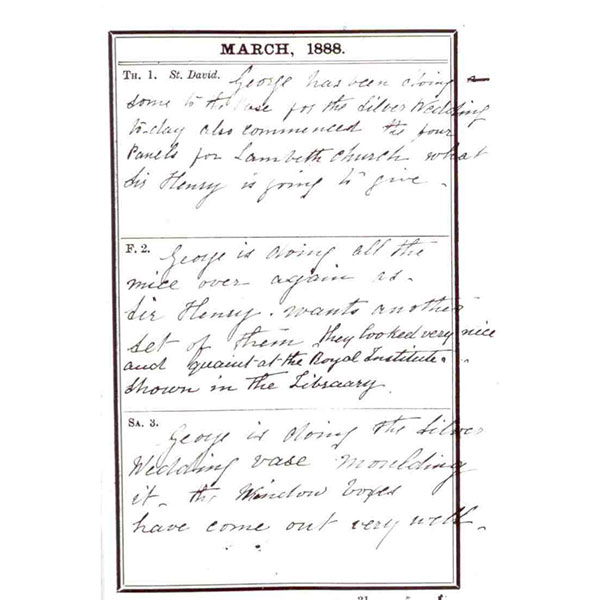 MARCH, 1888.
TH. 1. St. David. George has been doing
some to the vase for the Silver Wedding
to-day also commenced the four
Panels for Lambeth church what
Sir Henry is going to give.
F. 2. George is doing all the
mice over again as
Sir Henry. wants another
set of them they looked very nice
and quaint at the Royal Institute.
shown in the Libraary.
SA. 3. George is doing the Silver
Wedding vase moulding
it. the Window boxes
have come out very well.